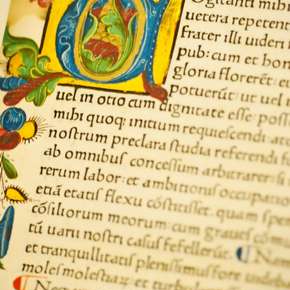 Ogitanti mihi
uetera repetent
frater illi uideri
pub: cum et hon
gloria florerēt: et
potuerūt: ut uel i
uel in otio cum dignitate esse poss
mihi quoq; initium requiescendi: at
nostrum preclara studia referendi f
ab omnibus concessum arbitrarer: s
rerum labor: et ambitionis occupatio
etiā etatis flexu cōstitisset. quam spem
cōsiliorum meorum: cum graues comu
tū uarii nostri casus fefellerūt.
et tranquillitatis plenissimus fore uideb
moles molestiaȝ: et turbule